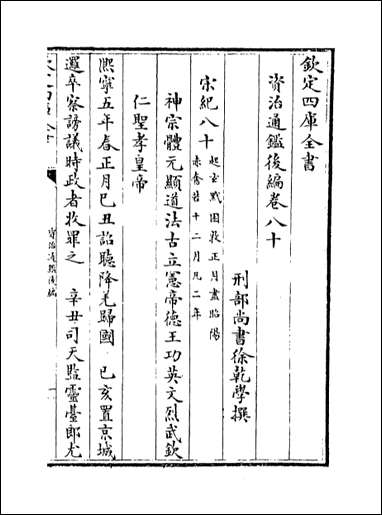 欽定四庫全書
資治通鑑後編卷八十
刑部尚書徐乾學撰
宋紀八十
起玄黓困敦正月盡昭陽
赤奮若十二月凡二年
神宗體元顯道法古立憲帝德王功英文烈武欽
仁聖孝皇帝
熙寧五年春正月己丑詔聽降羌歸國　己亥置京城
邏卒察謗議時政者收罪之　辛丑司天監靈臺郎尤
資治通鑑後編